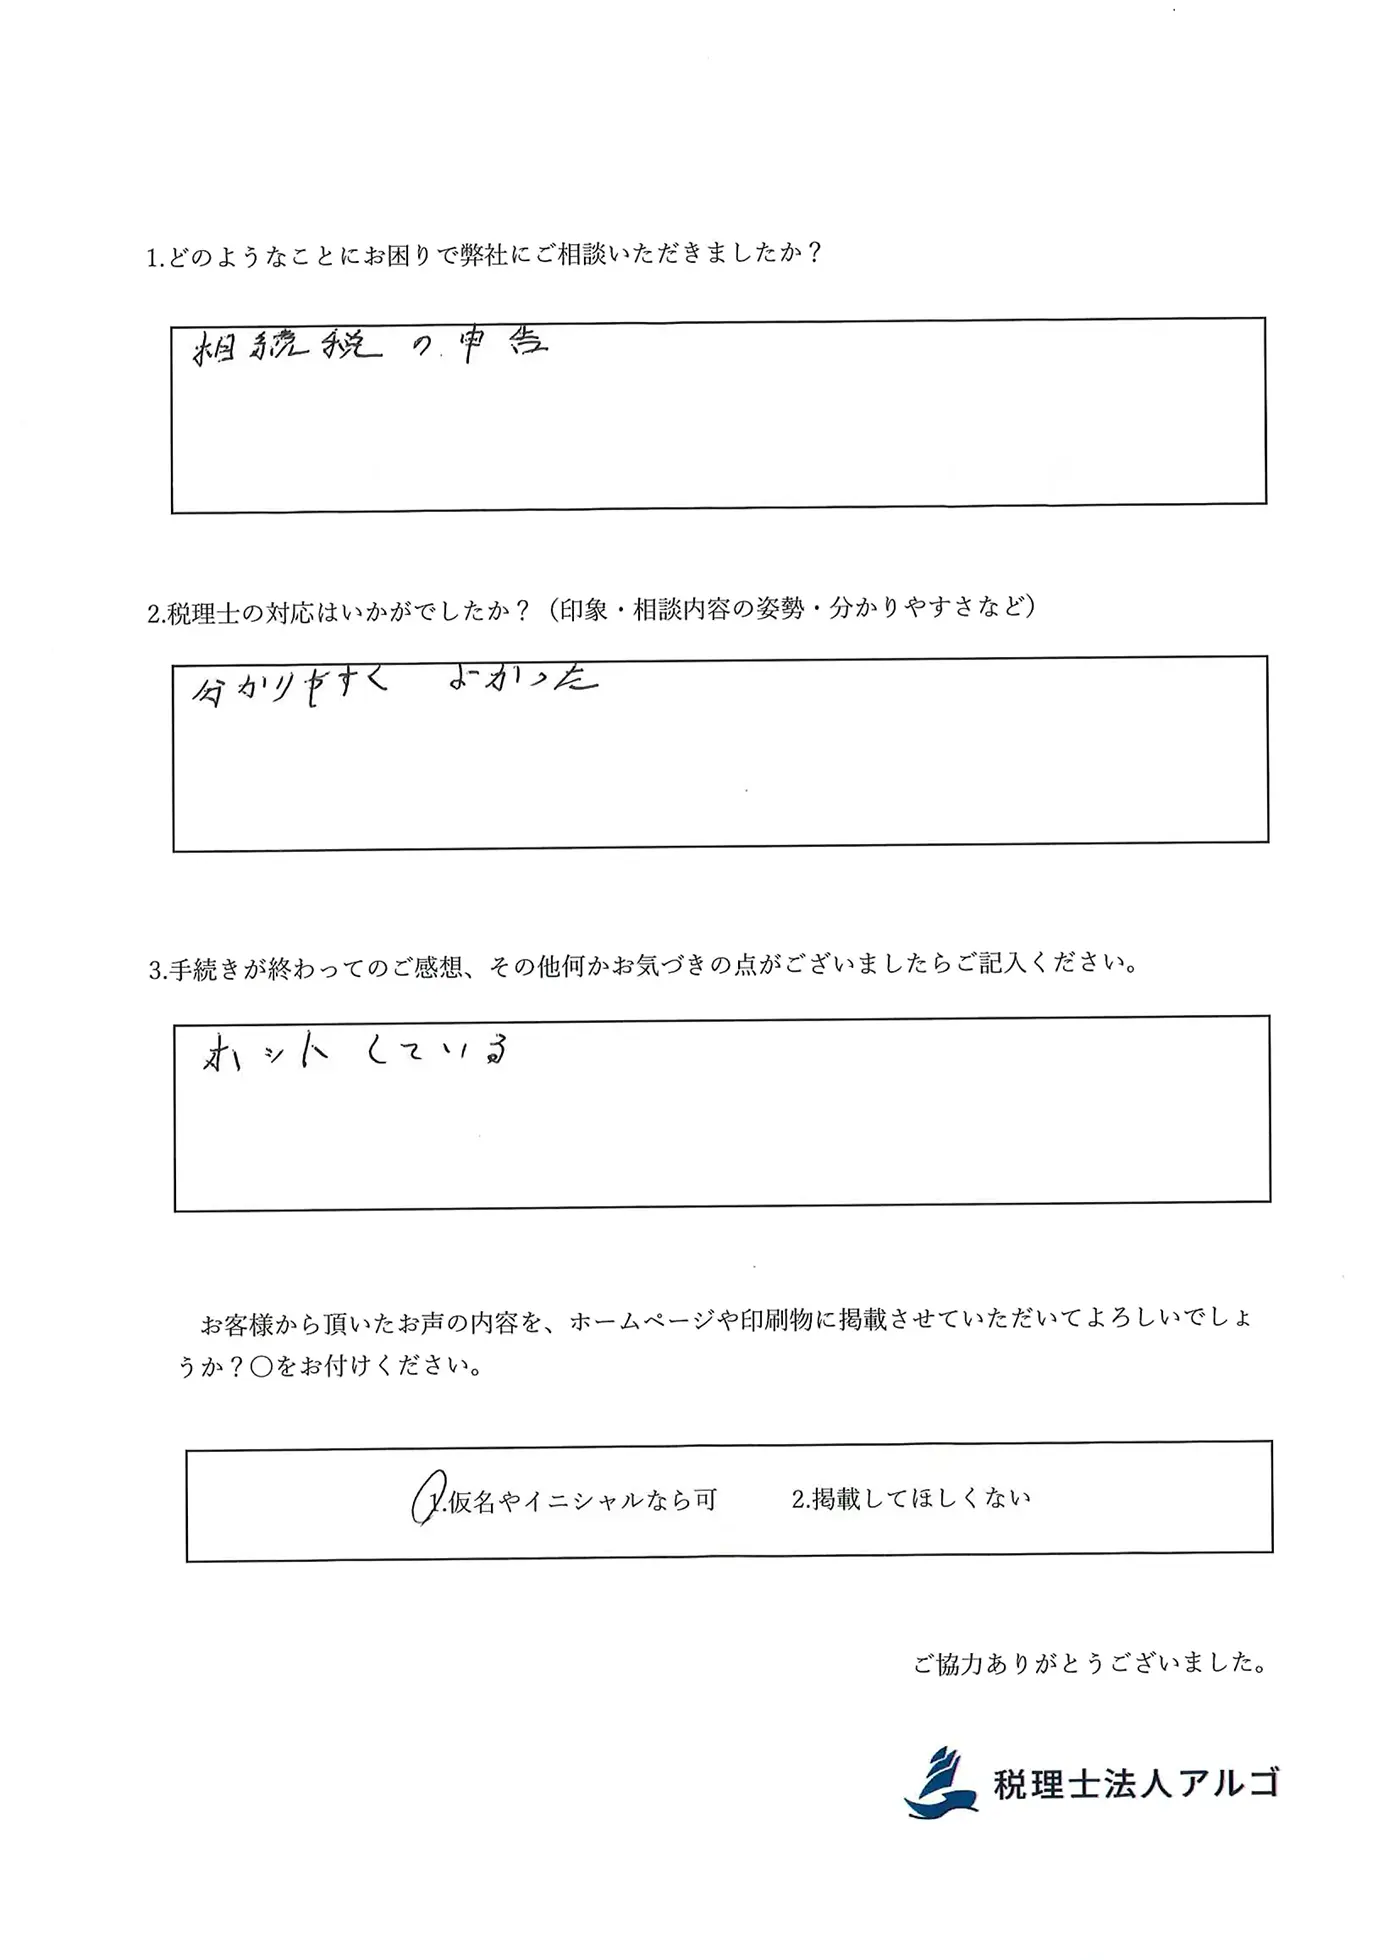 1.どのようなことにお困りで弊社にご相談いただきましたか？
相続税の申告
2.税理士の対応はいかがでしたか？（印象・相談内容の姿勢・分かりやすさなど）
分かりやすく　よかった
3.手続きが終わってのご感想、その他何かお気づきの点がございましたらご記入ください。
ホットしている
お客様から頂いたお声の内容を、ホームページや印刷物に掲載させていただいてよろしいでしょ
うか？〇をお付けください。
1.仮名やイニシャルなら可　　2.掲載してほしくない
ご協力ありがとうございました。
税理士法人アルゴ